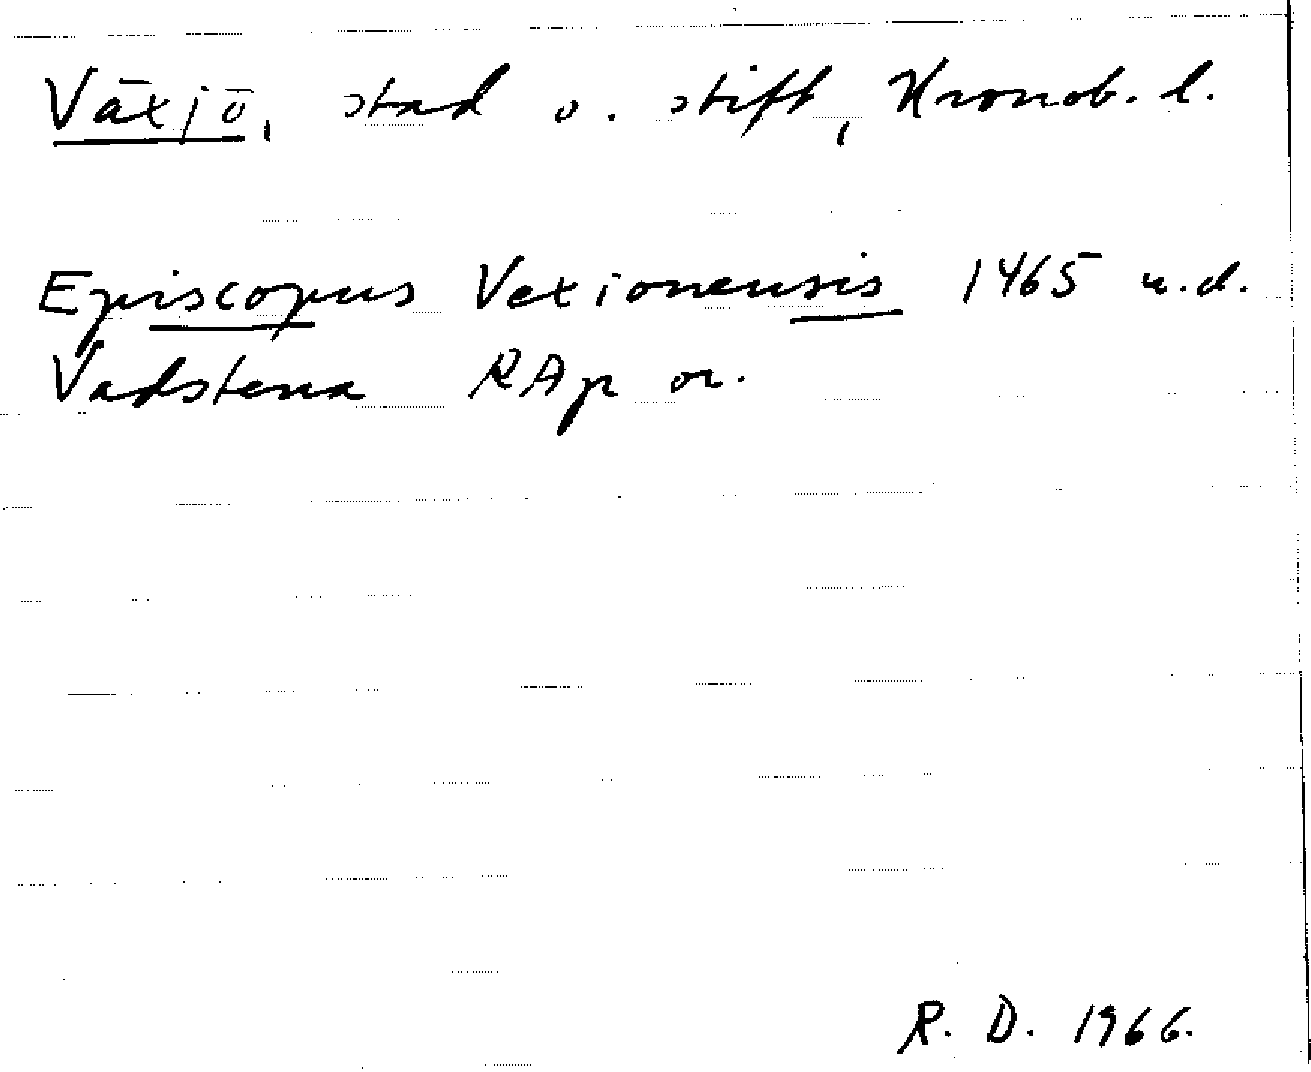 Växjö, stad o. stift, Kronob. l.
Episcopus Vexionensis 1465 u.d.
Vadstena RAp or.
R. D. 1966.